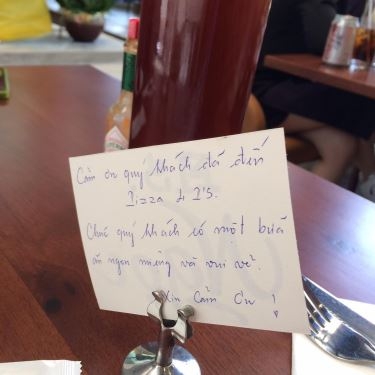 Cảm ơn quý khách đã đến
Pizza 4 P's.
Chúc quý khách có một bữa
ăn ngon miệng và vui vẻ.
Xin Cảm Ơn !